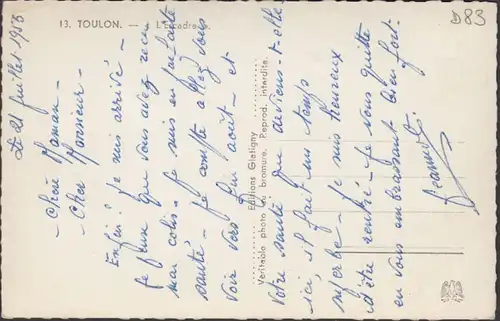 13. TOULON. — L'Escadre.
D83
Le 21 juillet 1958
- Chère Maman -
- Cher Monsieur -
Enfin! Je suis arrivé -
Je pense que vous avez reçu
mon colis - Je suis en parfaite
santé - Je compte allez vous
voir vers fin août - et
Votre santé que deviens-t-elle
ici, il fait un temps
superbe - Je suis heureux
d'être rentré - Je vous quitte
en vous embrassant bien fort -
Editions Gletigny
Véritable photo au bromure. Reprod. interdite.